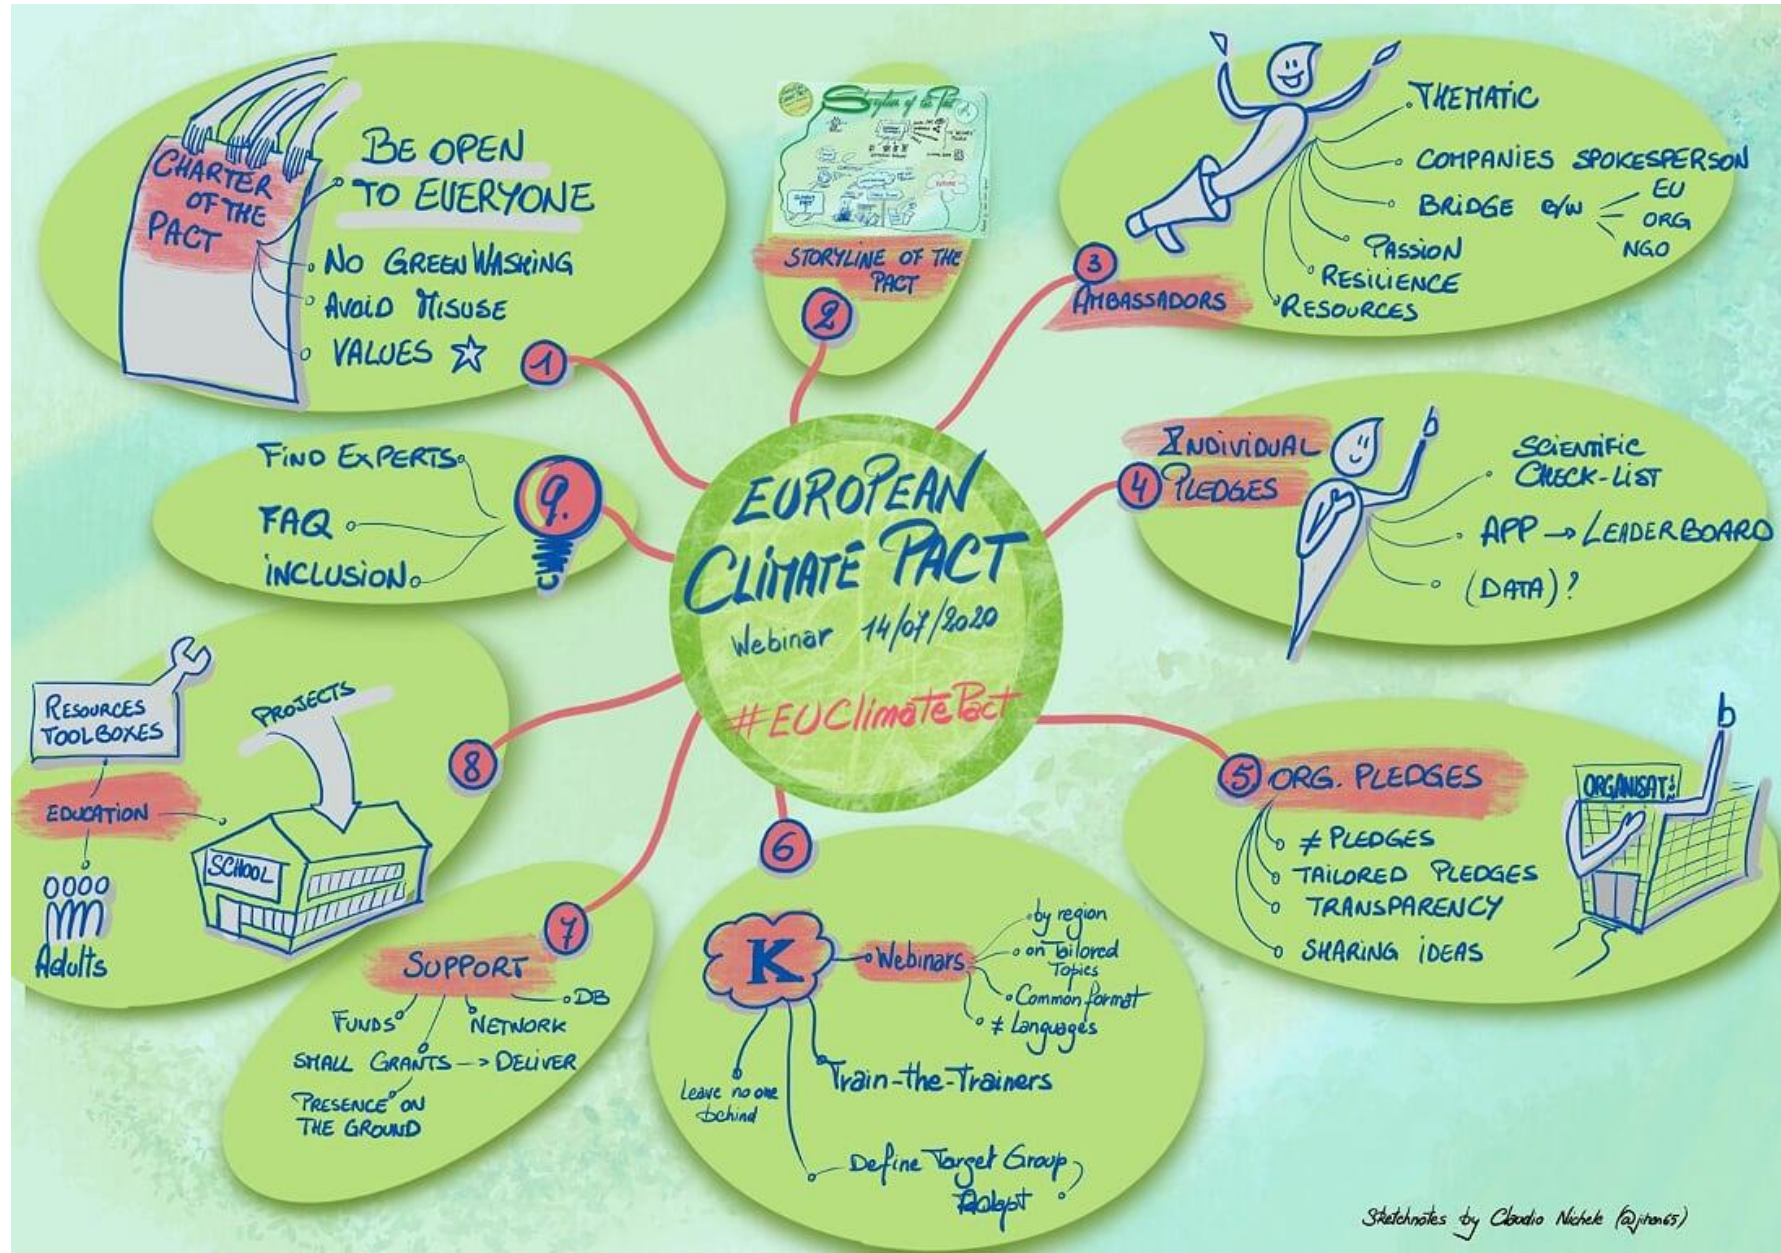 EUROPEAN
CLIMATE PACT
Webinar 14/07/2020
#EUClimatePact
1
CHARTER
OF THE
PACT
BE OPEN
TO EVERYONE
NO GREEN WASHING
AVOID MISUSE
VALUES
2
Storyline of the Pact
STORYLINE OF THE
PACT
3
AMBASSADORS
THEMATIC
COMPANIES SPOKESPERSON
BRIDGE B/W
EU
ORG
NGO
PASSION
RESILIENCE
RESOURCES
4
INDIVIDUAL
PLEDGES
SCIENTIFIC
CHECK-LIST
APP → LEADERBOARD
(DATA)?
5
ORG. PLEDGES
≠ PLEDGES
TAILORED PLEDGES
TRANSPARENCY
SHARING IDEAS
6
K
Webinars
by region
on Tailored
Topics
Common format
≠ Languages
Train-the-Trainers
Leave no one
behind
Define Target Group
Adapt
7
SUPPORT
DB
FUNDS
NETWORK
SMALL GRANTS -> DELIVER
PRESENCE ON
THE GROUND
8
RESOURCES
TOOLBOXES
PROJECTS
EDUCATION
SCHOOL
Adults
9.
FIND EXPERTS
FAQ
INCLUSION
Sketchnotes by Claudio Nichele (@jihan65)